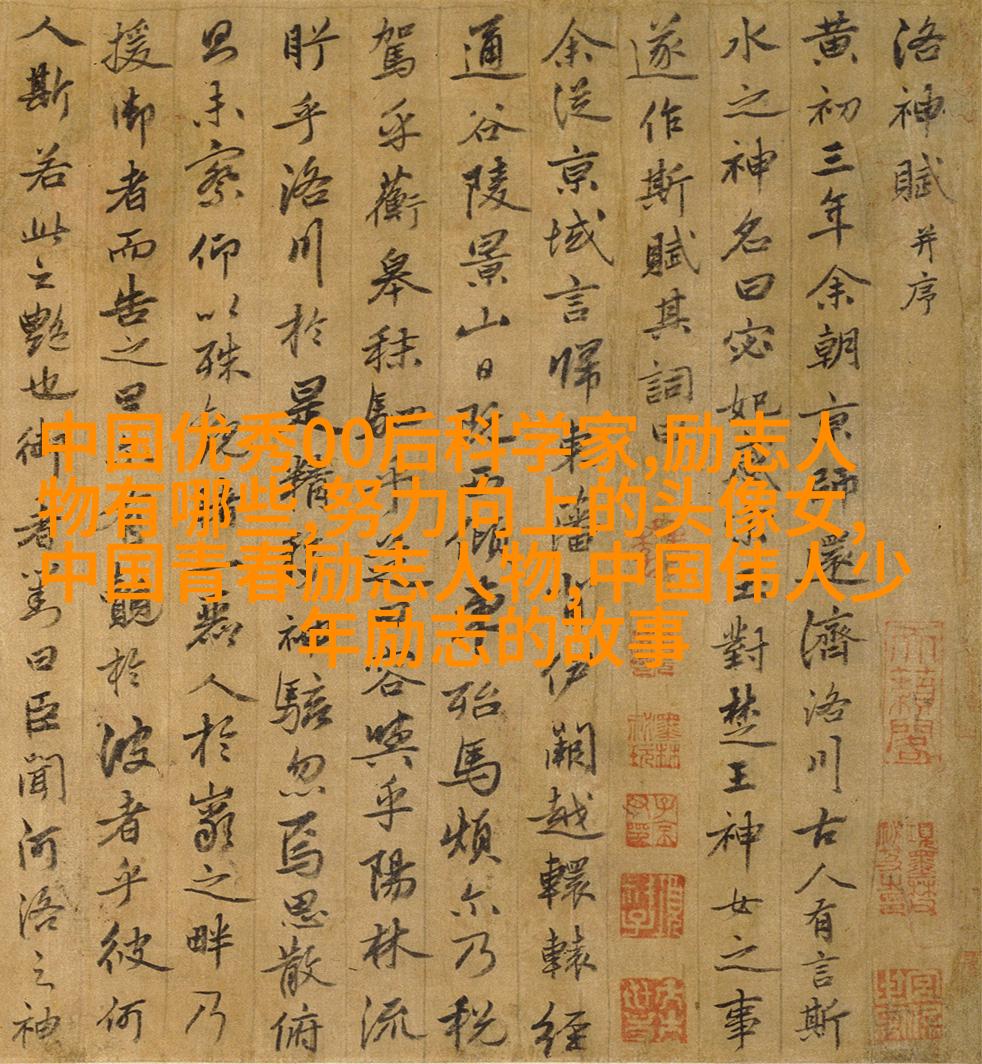 洛神賦 并序
黄初三年余朝京師還濟洛川古人有言斯
水之神名曰宓妃感宋玉對楚王神女之事
遂作斯賦其詞曰
余從京域言歸東藩背伊闕越轘轅經
通谷陵景山日既西傾車殆馬煩尓乃税
駕乎蘅皋秣駟乎芝田容與乎陽林流
眄乎洛川於是精移神駭忽焉思散俯
則未察仰以殊觀覩一麗人於巖之畔乃
援御者而告之曰爾有覿於彼者乎彼何
人斯若此之艷也御者對曰臣聞河洛之神
中国优秀00后科学家,励志人
物有哪些,努力向上的头像女,
中国青春励志人物,中国伟人少
年励志的故事